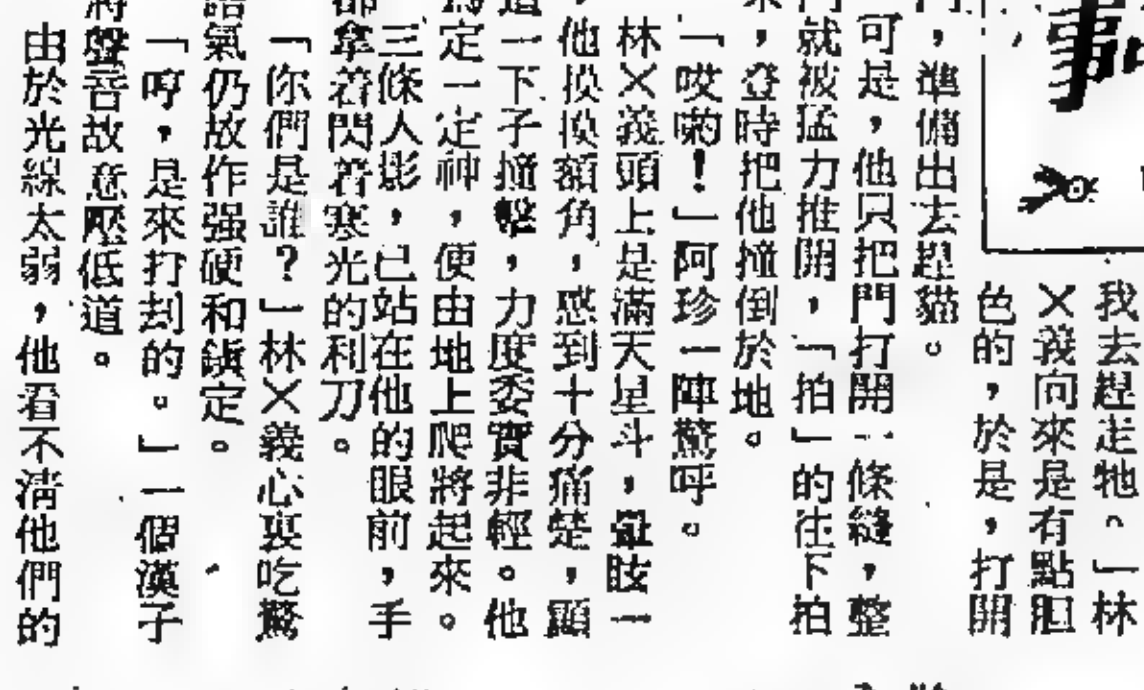 我去趕走牠。」林
×義向來是有點胆
色的，於是，打開
門，準備出去趕貓。
可是，他只把門打開一條縫，整
門就被猛力推開，「拍」的往下拍
來，登時把他撞倒於地。
「哎喲！」阿珍一陣驚呼。
林×義頭上是滿天星斗，暈眩一
，他摸摸額角，感到十分痛楚，顯
這一下子撞擊，力度委實非輕。他
定一定神，便由地上爬將起來。
三條人影，已站在他的眼前，手
都拿着閃着寒光的利刀。
「你們是誰？」林×義心裏吃驚
語氣仍故作强硬和鎮定。
「哼，是來打刦的。」一個漢子
將聲音故意壓低道。
由於光線太弱，他看不清他們的